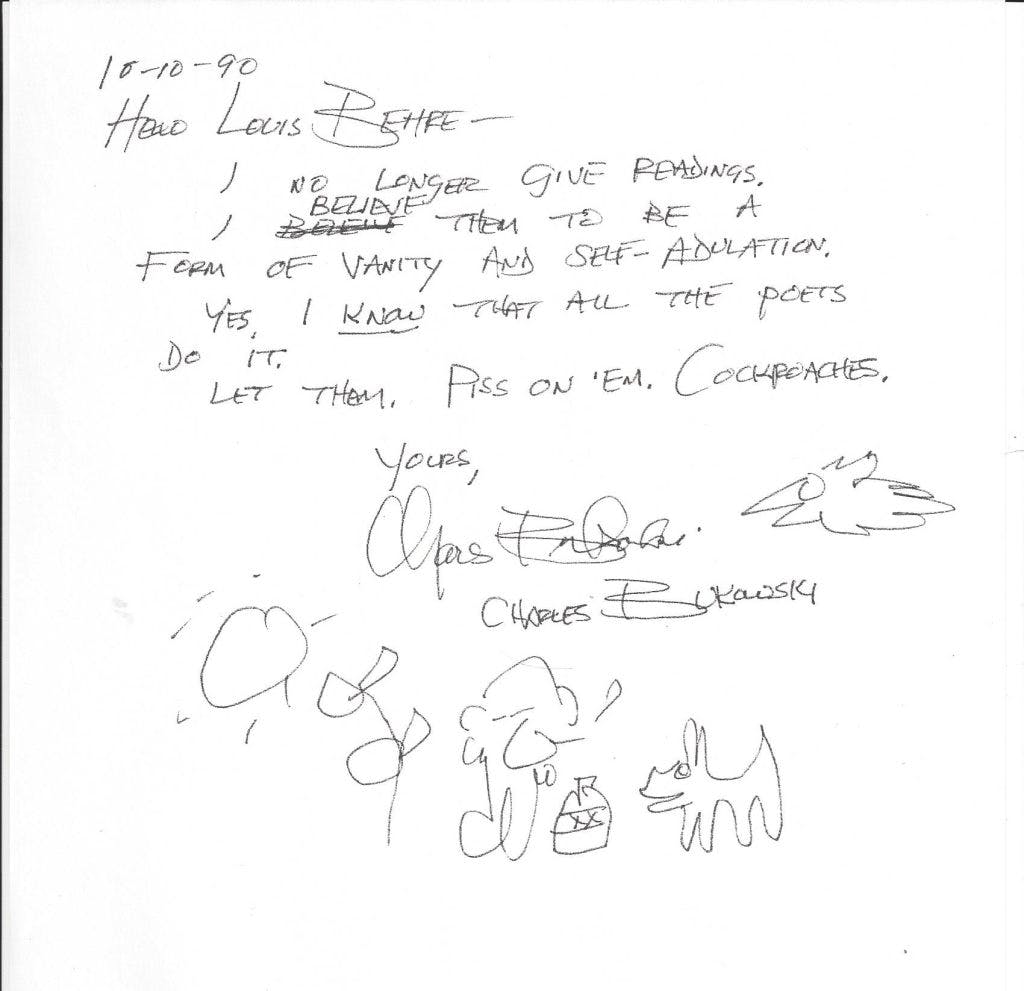 10-10-90
Hello Louis Behre —
I no longer give readings.
believe
I believe them to be a
form of vanity and self-adulation.
Yes, I know that all the poets
do it.
Let them. Piss on 'em. Cockroaches.
Yours,
Charles Bukowski
Charles Bukowski
XX